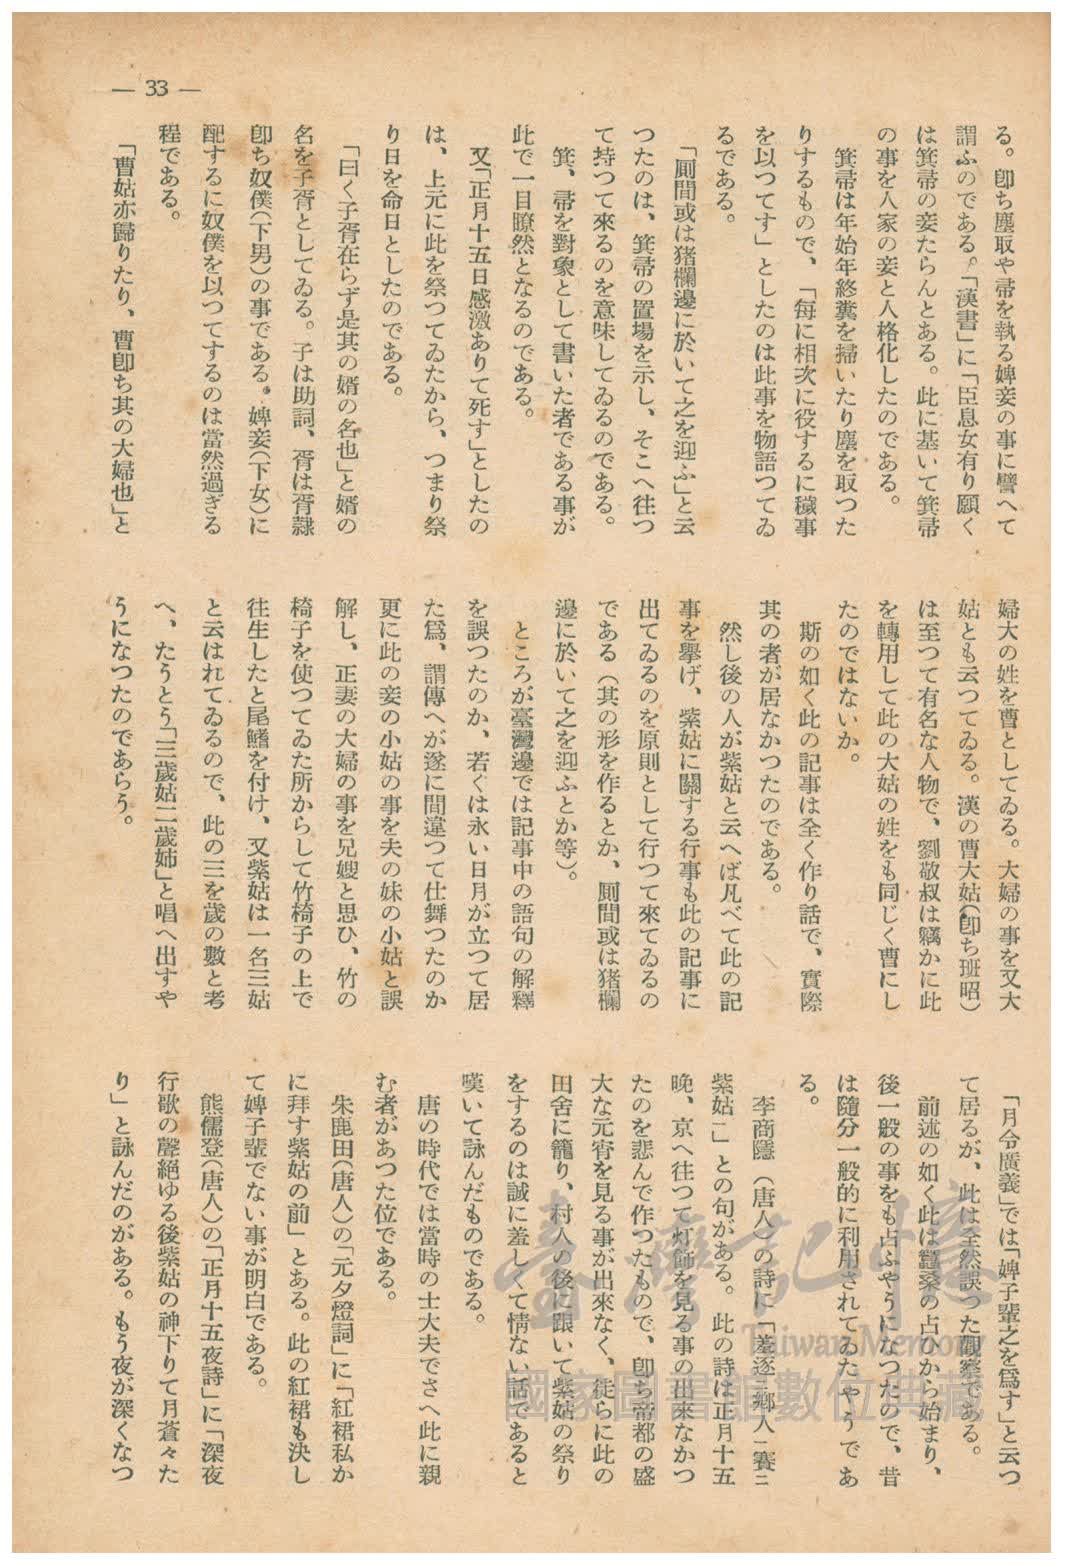 — 33 —
る。卽ち塵取や帚を執る婢妾の事に譬へて
謂ふのである。「漢書」に「臣息女有り願く
は箕帚の妾たらんとある。此に基いて箕帚
の事を人家の妾と人格化したのである。
箕帚は年始年終糞を掃いたり塵を取つた
りするもので、「每に相次に役するに穢事
を以つてす」としたのは此事を物語つてゐ
るである。
「厠間或は猪欄邊に於いて之を迎ふ」と云
つたのは、箕帚の置場を示し、そこへ往つ
て持つて來るのを意味してゐるのである。
箕、帚を對象として書いた者である事が
此で一目瞭然となるのである。
又「正月十五日感激ありて死す」としたの
は、上元に此を祭つてゐたから、つまり祭
り日を命日としたのである。
「曰く子胥在らず是其の婿の名也」と婿の
名を子胥としてゐる。子は助詞、胥は胥隷
卽ち奴僕(下男)の事である。婢妾(下女)に
配するに奴僕を以つてするのは當然過ぎる
程である。
「曹姑亦歸りたり、曹卽ち其の大婦也」と
婦大の姓を曹としてゐる。大婦の事を又大
姑とも云つてゐる。漢の曹大姑(卽ち班昭)
は至つて有名な人物で、劉敬叔は竊かに此
を轉用して此の大姑の姓をも同じく曹にし
たのではないか。
斯の如く此の記事は全く作り話で、實際
其の者が居なかつたのである。
然し後の人が紫姑と云へば凡べて此の記
事を擧げ、紫姑に關する行事も此の記事に
出てゐるのを原則として行つて來てゐるの
である(其の形を作るとか、厠間或は猪欄
邊に於いて之を迎ふとか等)。
ところが臺灣邊では記事中の語句の解釋
を誤つたのか、若くは永い日月が立つて居
た爲、謂傳へが遂に間違つて仕舞つたのか
更に此の妾の小姑の事を夫の妹の小姑と誤
解し、正妻の大婦の事を兄嫂と思ひ、竹の
椅子を使つてゐた所からして竹椅子の上で
往生したと尾鰭を付け、又紫姑は一名三姑
と云はれてゐるので、此の三を歲の數と考
へ、たうとう「三歲姑二歲姉」と唱へ出すや
うになつたのであらう。
「月令廣義」では「婢子輩之を爲す」と云つ
て居るが、此は全然誤つた觀察である。
前述の如く此は蠶桑の占ひから始まり、
後一般の事をも占ふやうになつたので、昔
は隨分一般的に利用されてゐたやうであ
る。
李商隱(唐人)の詩に「羞逐ニ鄉人ニ賽ニ
紫姑一」との句がある。此の詩は正月十五
晚、京へ往つて灯飾を見る事の出來なかつ
たのを悲んで作つたもので、卽ち帝都の盛
大な元宵を見る事が出來なく、徒らに此の
田舍に籠り、村人の後に跟いて紫姑の祭り
をするのは誠に羞しくて情ない話であると
嘆いて詠んだものである。
唐の時代では當時の士大夫でさへ此に親
む者があつた位である。
朱鹿田(唐人)の「元夕燈詞」に「紅裙私か
に拜す紫姑の前」とある。此の紅裙も決し
て婢子輩でない事が明白である。
熊儒登(唐人)の「正月十五夜詩」に「深夜
行歌の聲絕ゆる後紫姑の神下りて月蒼々た
り」と詠んだのがある。もう夜が深くなつ
臺灣記憶
Taiwan Memory
國家圖書館數位典藏